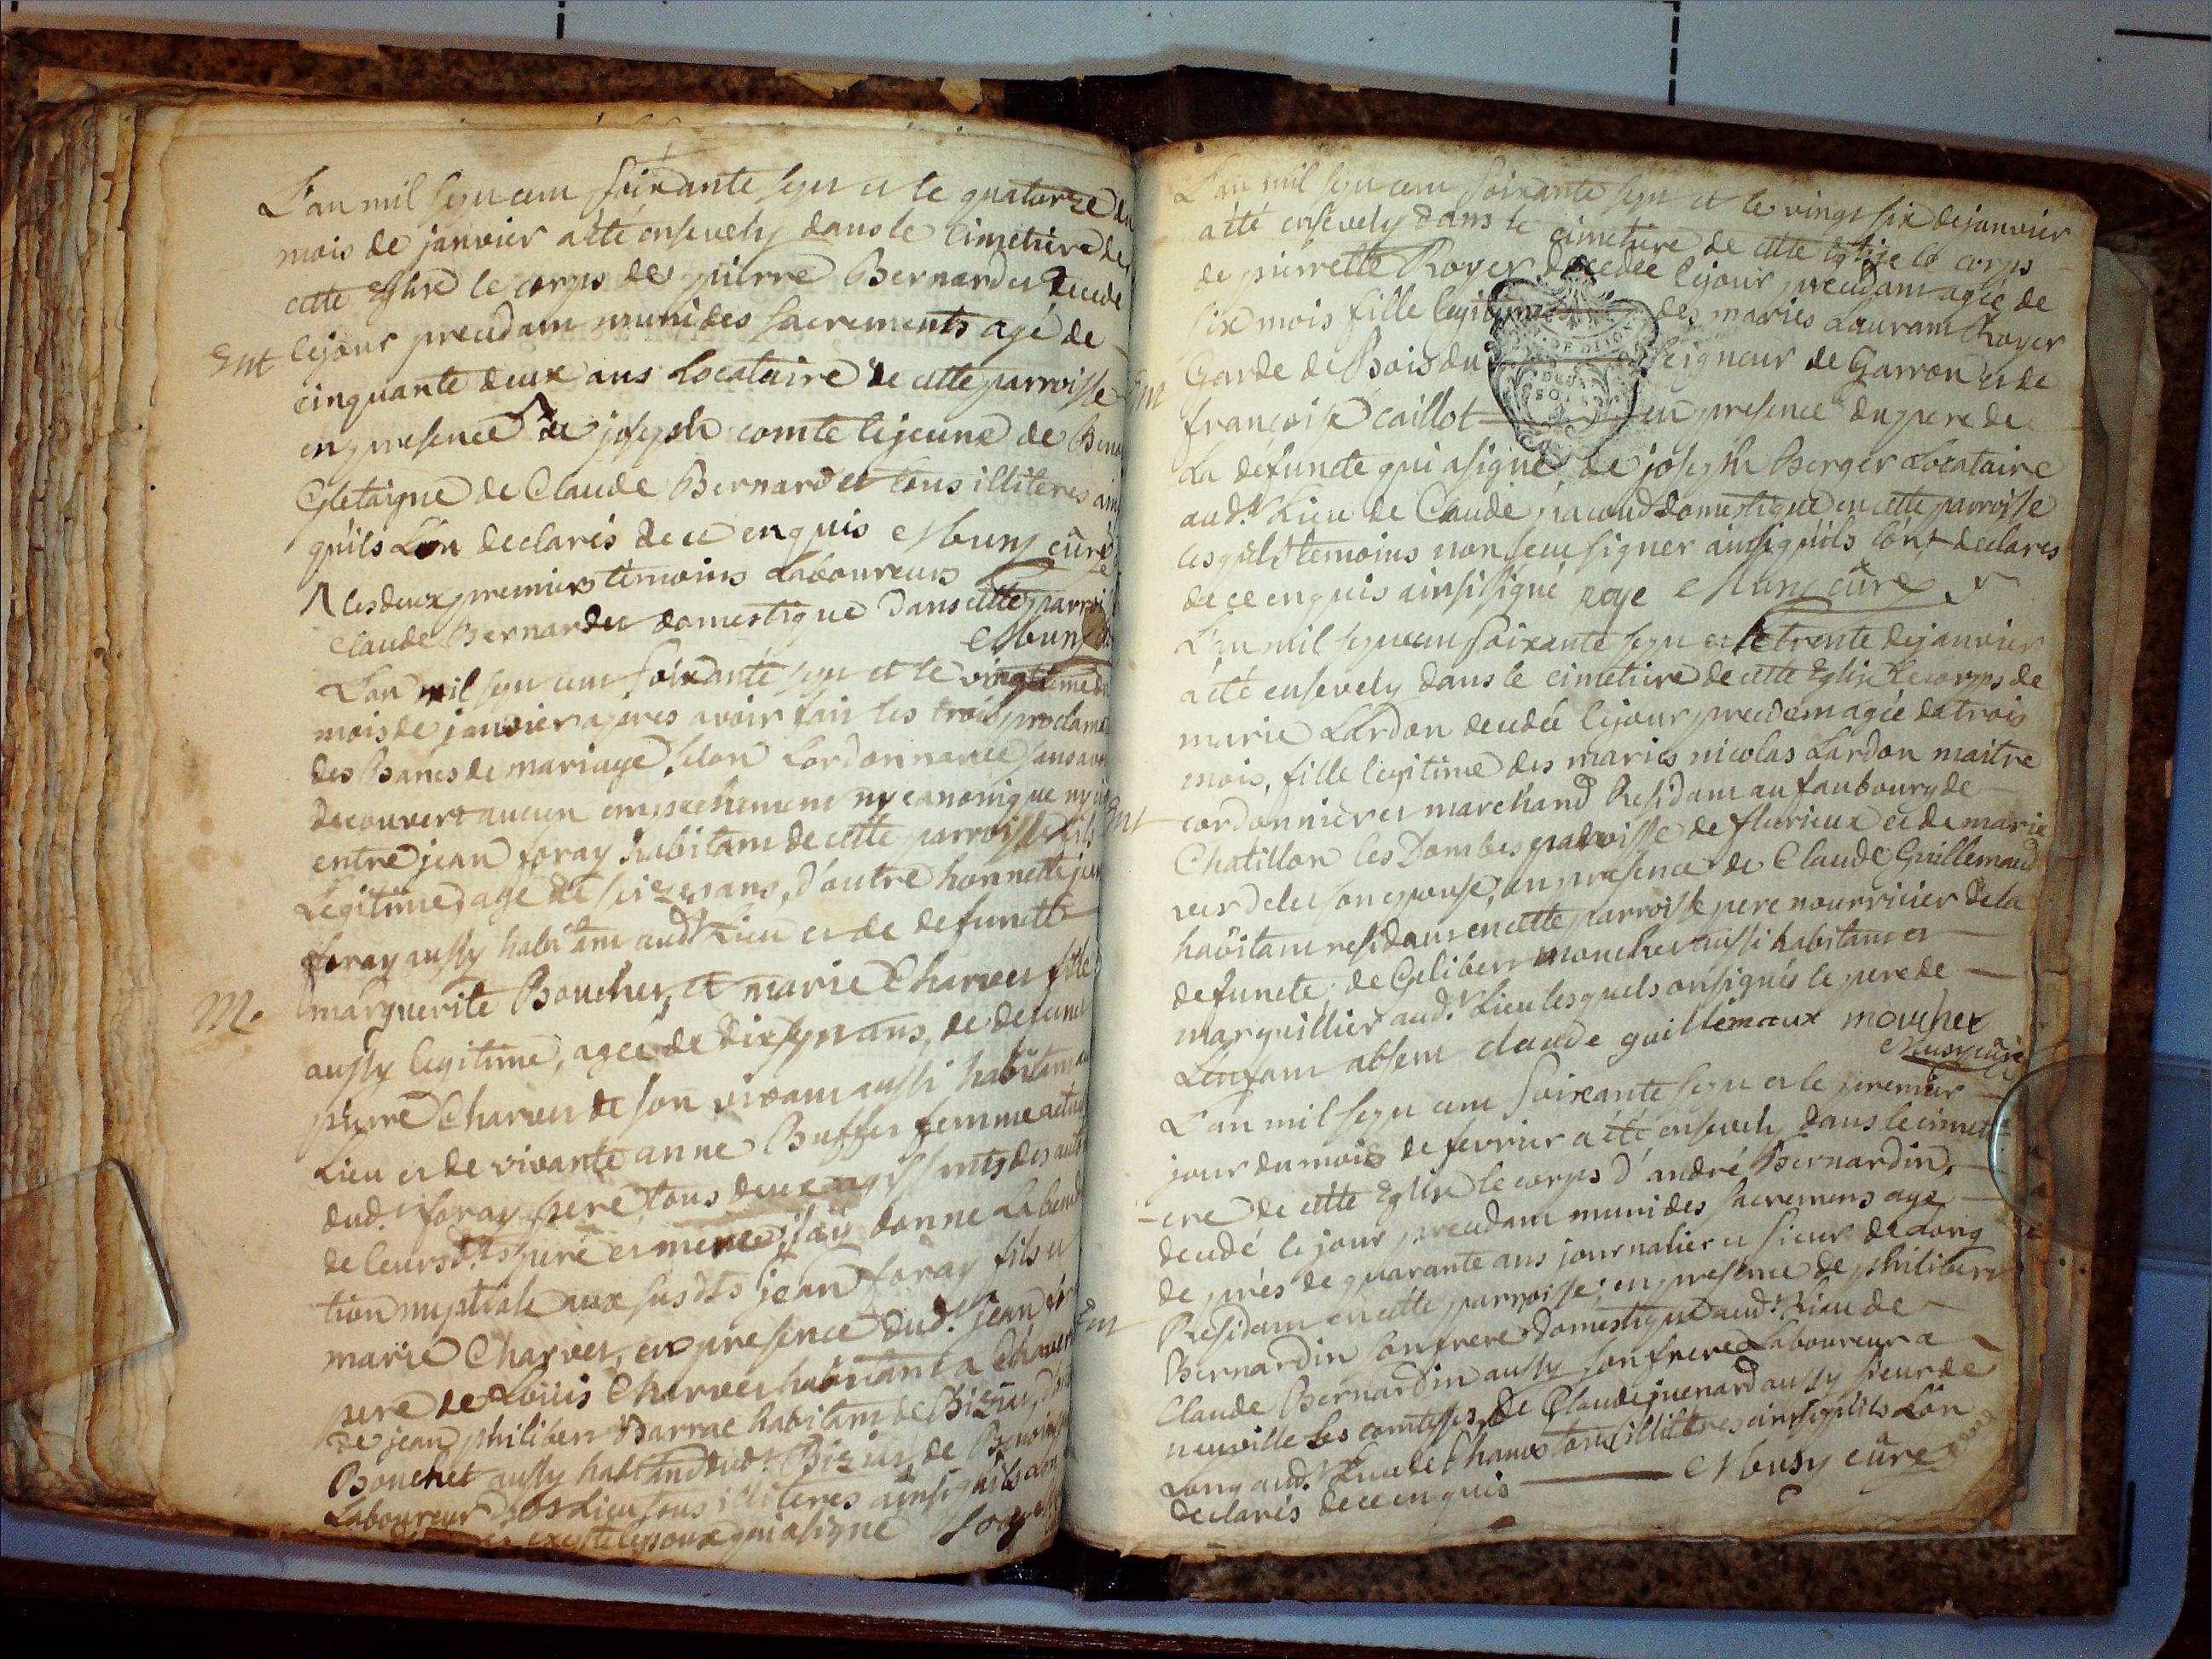 L'an mil sept cent soixante sept et le quatorze du
mois de janvier a été ensevely dans le cimetiere de
cette Eglise le corps de pierre Bernardet decede
Ent lejour precedant muni des sacrements agé de
cinquante deux ans Locataire de cette parroisse
en presence de joseph comte lejeune de
de Claude Bernardet tous illiteres ains
qu'ils L'on declarés de ce enquis curé
les deux premiers temoins Laboureurs
Claude Bernardet domestique dans cette parroi
L'an mil sept cent soixante sept et le vingtieme du
mois de janvier apres avoir fait les trois proclama
des Bancs de mariage selon Lordonnance sans avoir
decouvert aucun empechement ny canonique ny
entre jean foray habitant de cette parroisse fils
Legitime, agé de seize ans, d'autre honnette jean
foray aussy habitant aud. Lieu et de defuncte
M. marguerite Bouchet, et marie Charvet fille
aussy legitime, agée de dix sept ans, de defunct
pierre Charvet de son vivant aussi habitant au
Lieu et de vivante anne Buffet femme actu
dud. foray pere tous deux agissants des auth
de leursd. pere et mere, j'ay donné La bened
tion nuptiale aux susdts jean foray fils et
marie Charvet, en presence dud. jean
pere de Loüis Charvet habitant a
de jean philibert Barrac habitant de Biziat,
Bouchet aussy habitant dud. Biziat, de
Laboureur Lieu tous illiteres ainsi qu'ils
excepté lepoux qui a signé foray
L'an mil sept cent soixante sept et le vingt six de janvier
a été ensevely dans le cimetiere de cette Eglise le corps
de pierrette Royer decedée lejour precedant agée de
six mois fille legitime des mariés Laurant Royer
Ent Garde de Bois du seigneur de Garron et de
françoise Caillot en presence du pere de
La defuncte qui a signé, de joseph Berger Locataire
aud. Lieu de Claude domestique en cette parroisse
lesquels temoins non sceu signer ainsi qu'ils l'ont declarés
de ce enquis ainsi signé roye curé
L'an mil sept cent soixante sept et le trente de janvier
a été ensevely dans le cimetiere de cette Eglise Le corps de
marie Lardon decedée lejour precedent agée de trois
mois, fille legitime des mariés nicolas Lardon maitre
Ent cordonnier et marchand Residant au faubourg de
Chatillon les Dombes parroisse de flurieux et de marie
son epouse, en presence de Claude Guillemaud
habitant residant en cette parroisse pere nourricier de la
defuncte, de mouchet aussi habitant et
marguillier aud. Lieu lesquels ont signés le pere de
L'enfant absent claude guillemaux mouchet
curé
L'an mil sept cent soixante sept et le premier
jour du mois de fevrier a été ensevely dans le cimeti
-ere de cette Eglise le corps d'andré Bernardin,
decedé le jour precedant muni des sacremens agé
de près de quarante ans journalier et sieur de Long
Ent Residant en cette parroisse; en presence de philibert
Bernardin son frere domestique aud. Lieu de
Claude Bernardin aussy son frere Laboureur a
neuville les comtesses, de Claude juenard aussy sieur de
Long aud. Lieu de Chanox tous illiteres ainsi qu'ils L'on
declarés de ce enquis curé